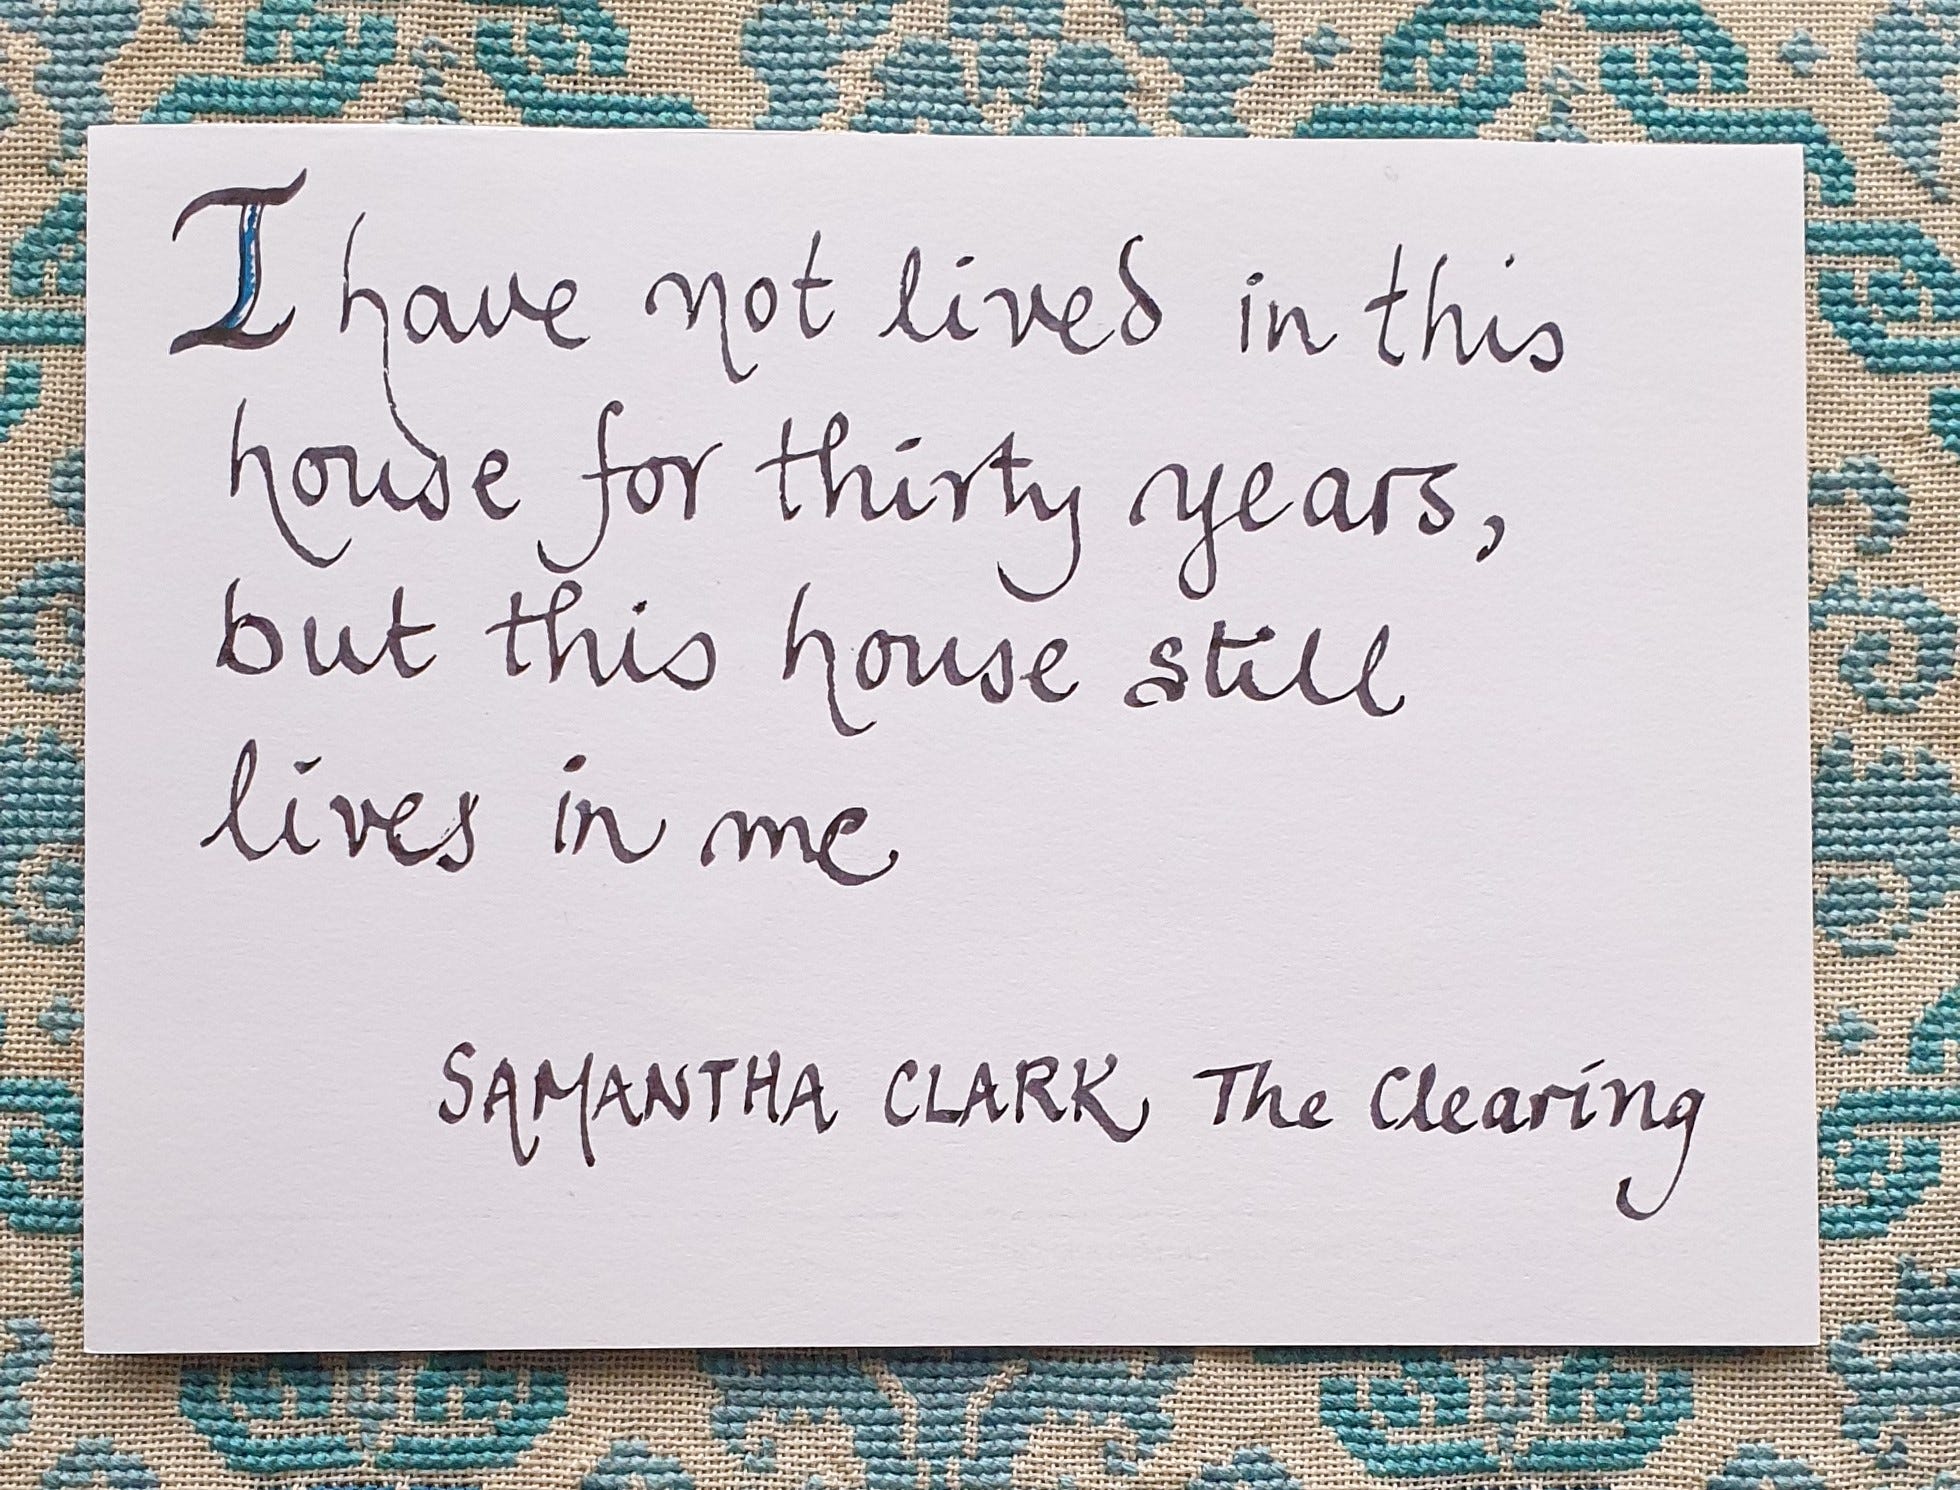 I have not lived in this
house for thirty years,
but this house still
lives in me
SAMANTHA CLARK The Clearing